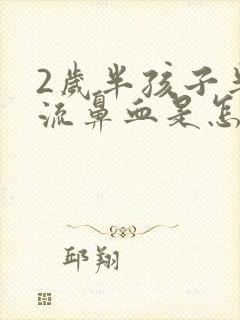 2歲半孩子
流鼻血是怎
邱翔